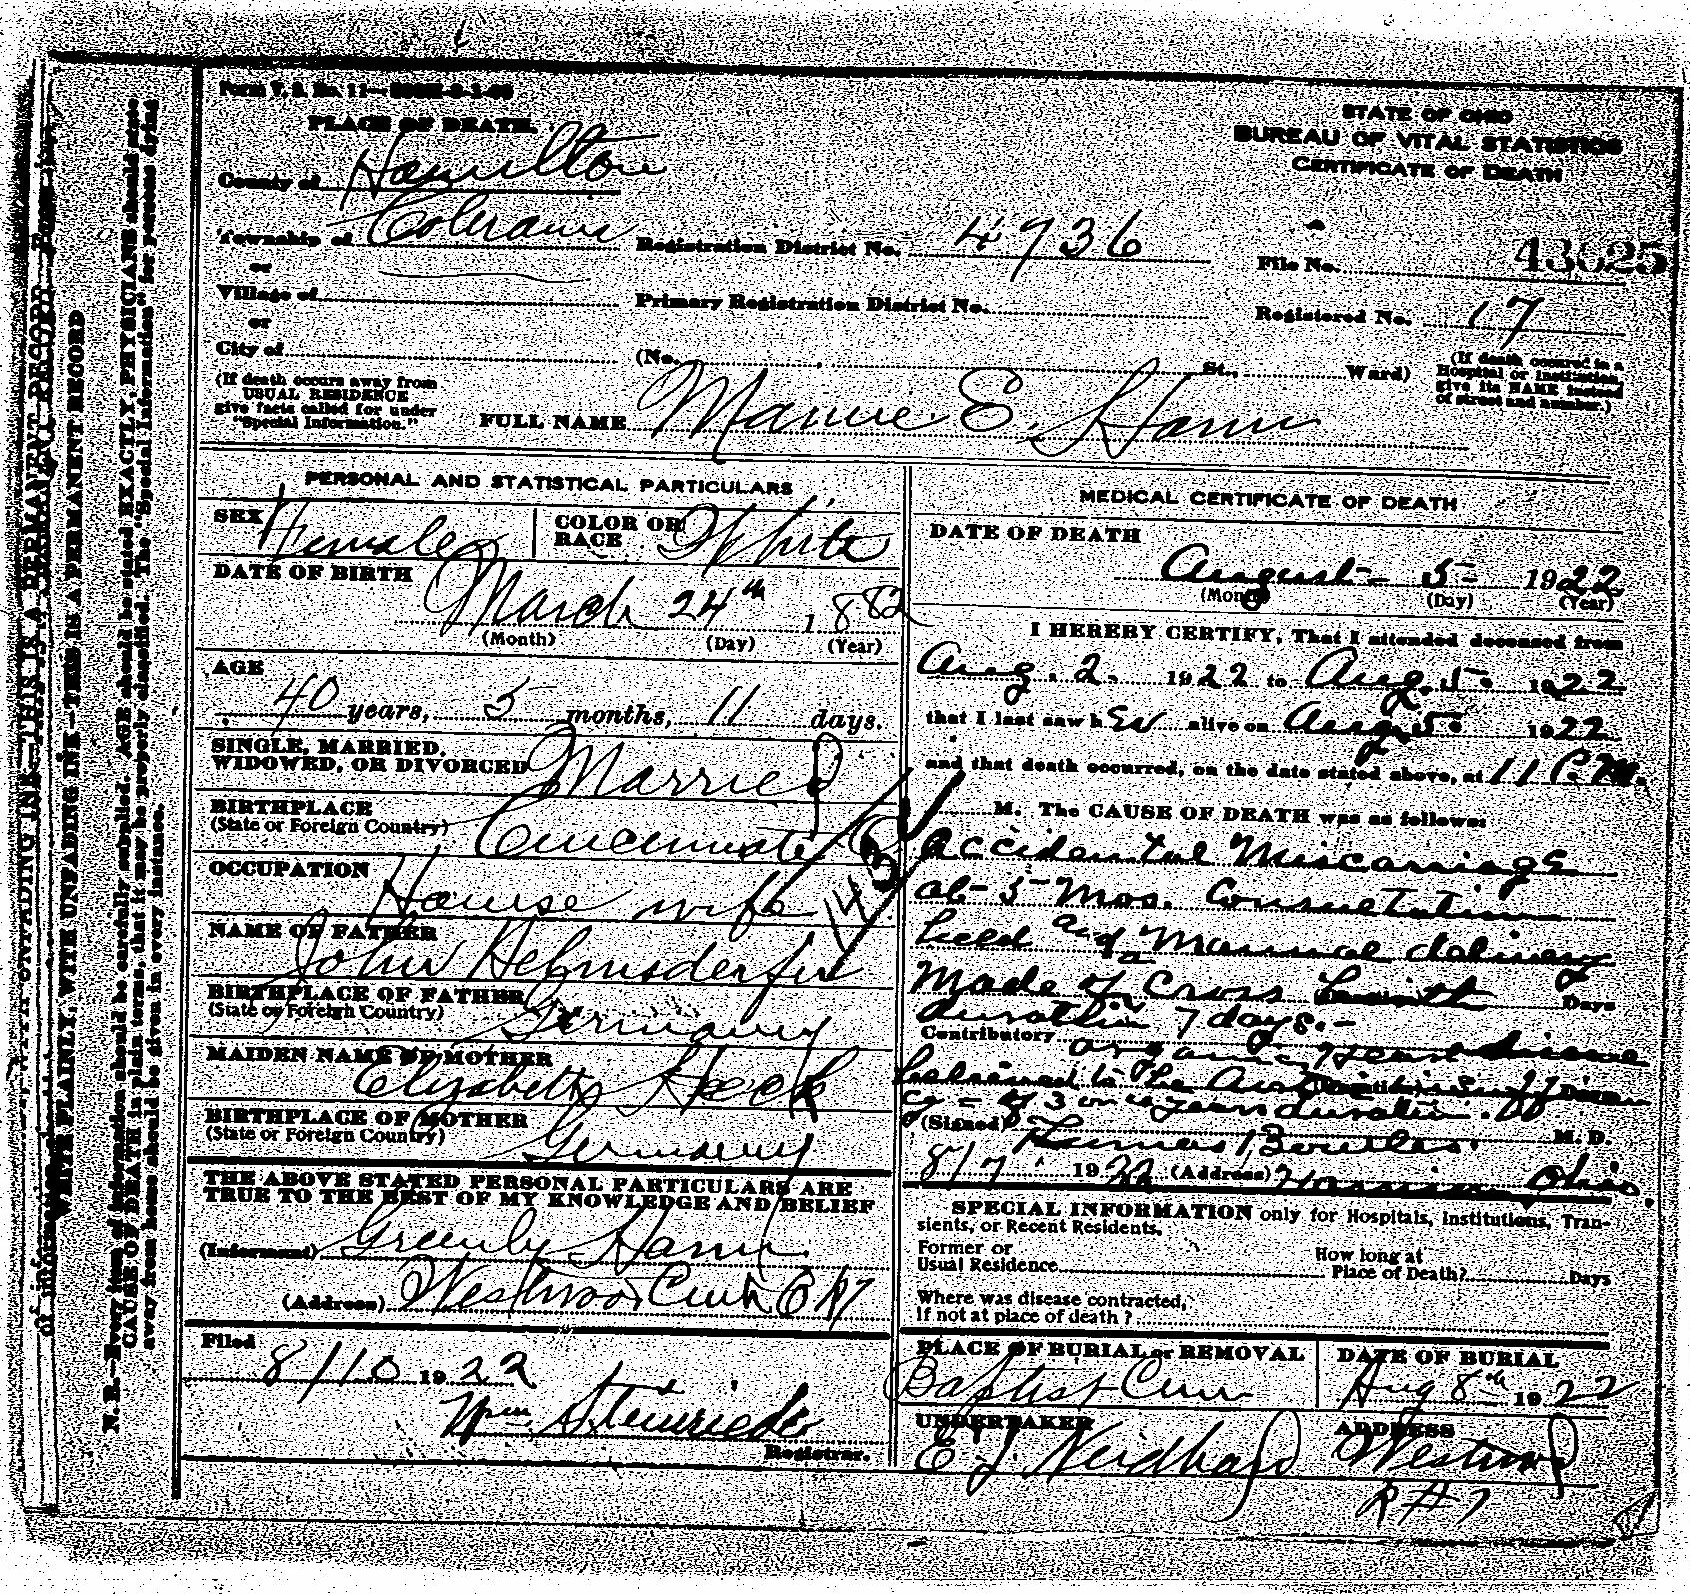 Form V. S. No. 11—
PLACE OF DEATH.
STATE OF OHIO
BUREAU OF VITAL STATISTICS
CERTIFICATE OF DEATH
County of Hamilton
Township of Colerain
Registration District No. 4936
File No. 43625
or
Village of
Primary Registration District No.
Registered No. 17
or
City of
(No. , St., Ward)
(If death occured in a
Hospital or Institution,
give its NAME instead
of street and number.)
(If death occurs away from
USUAL RESIDENCE
give facts called for under
"Special Information.")
FULL NAME Mamie E. Hann
PERSONAL AND STATISTICAL PARTICULARS
SEX Female
COLOR OR
RACE White
DATE OF BIRTH
March 24th 1882
(Month) (Day) (Year)
AGE
40 years, 5 months, 11 days.
SINGLE, MARRIED,
WIDOWED, OR DIVORCED Married
BIRTHPLACE
(State or Foreign Country) Cincinnati O
OCCUPATION
House wife
NAME OF FATHER
John
BIRTHPLACE OF FATHER
(State or Foreign Country) Germany
MAIDEN NAME OF MOTHER
Elizabeth Heck
BIRTHPLACE OF MOTHER
(State or Foreign Country) Germany
THE ABOVE STATED PERSONAL PARTICULARS ARE
TRUE TO THE BEST OF MY KNOWLEDGE AND BELIEF
(Informant) Greenly Hann
(Address) Westwood
Filed
8/10 1922
Wm
Registrar.
MEDICAL CERTIFICATE OF DEATH
DATE OF DEATH
August 5 1922
(Month) (Day) (Year)
I HEREBY CERTIFY, That I attended deceased from
Aug. 2. 1922 to Aug. 5. 1922
that I last saw h er alive on Aug. 5 1922
and that death occurred, on the date stated above, at 11 P.M.
M. The CAUSE OF DEATH was as follows:
Accidental Miscarriage
at 5 Mos. Consultation
held and Manual delivery
made of a Cross birth
Days
duration 7 days.
Contributory
organic Heart disease
of 3 or 4 years duration.
(Signed) Thomas M. D.
8/7 1922 (Address) Harrison Ohio.
SPECIAL INFORMATION only for Hospitals, Institutions, Tran-
sients, or Recent Residents.
Former or
Usual Residence
How long at
Place of Death? Days
Where was disease contracted,
if not at place of death?
PLACE OF BURIAL or REMOVAL
Baptist Cem
DATE OF BURIAL
Aug 8th 1922
UNDERTAKER
E J Neidhard
ADDRESS
Westwood
R#7
WRITE PLAINLY, WITH UNFADING INK—THIS IS A PERMANENT RECORD
N. B.—Every item of information should be carefully supplied. AGE should be stated EXACTLY. PHYSICIANS should state
CAUSE OF DEATH in plain terms, that it may be properly classified. The "Special Information" for persons dying
away from home should be given in every instance.